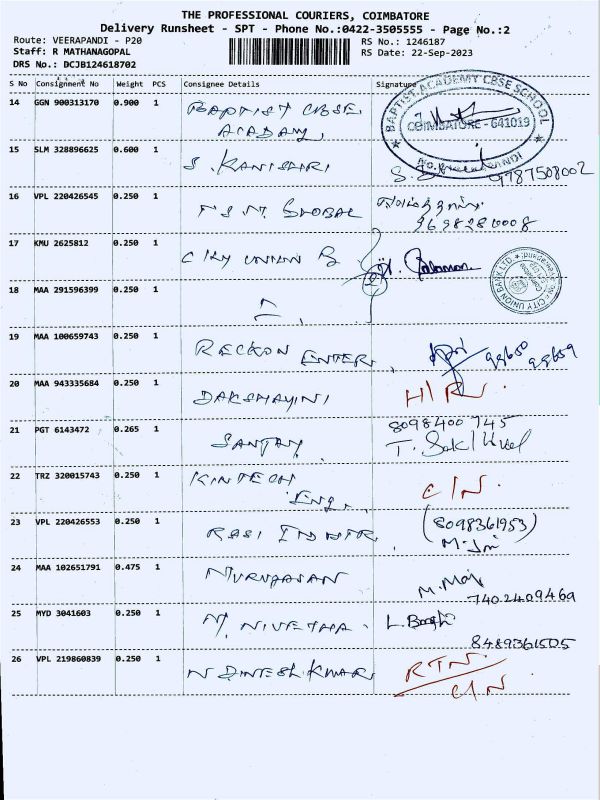 THE PROFESSIONAL COURIERS, COIMBATORE
Delivery Runsheet - SPT - Phone No.:0422-3505555 - Page No.:2
Route: VEERAPANDI - P20
RS No.: 1246187
Staff: R MATHANAGOPAL
RS Date: 22-Sep-2023
DRS No.: DCJB124618702
S No Consignment No Weight PCS Consignee Details Signature
14 GGN 900313170 0.900 1 BAPTIST CBSE
ACADAMY
BAPTIST ACADEMY CBSE SCHOOL
COIMBATORE - 641019
15 SLM 328896625 0.600 1 S. 9787508002
16 VPL 220426545 0.250 1 GLOBAL
9698280008
17 KMU 2625812 0.250 1 CITY UNION B
CITY UNION BANK LTD.
18 MAA 291596399 0.250 1
19 MAA 100659743 0.250 1 RECKON ENTER 98650
98659
20 MAA 943335684 0.250 1 DAKSHAYINI H/R.
21 PGT 6143472 0.265 1 SANJAY 8098400745
T.
22 TRZ 320015743 0.250 1 KINTECH C/N.
ENG.
23 VPL 220426553 0.250 1 RASI INDSTR (8098361953)
24 MAA 102651791 0.475 1 M. Mani
7402409469
25 MYD 3041603 0.250 1 M. NIVETHA. L.
8489361505
26 VPL 219860839 0.250 1 N DINESH KUMAR RTN.
C/N